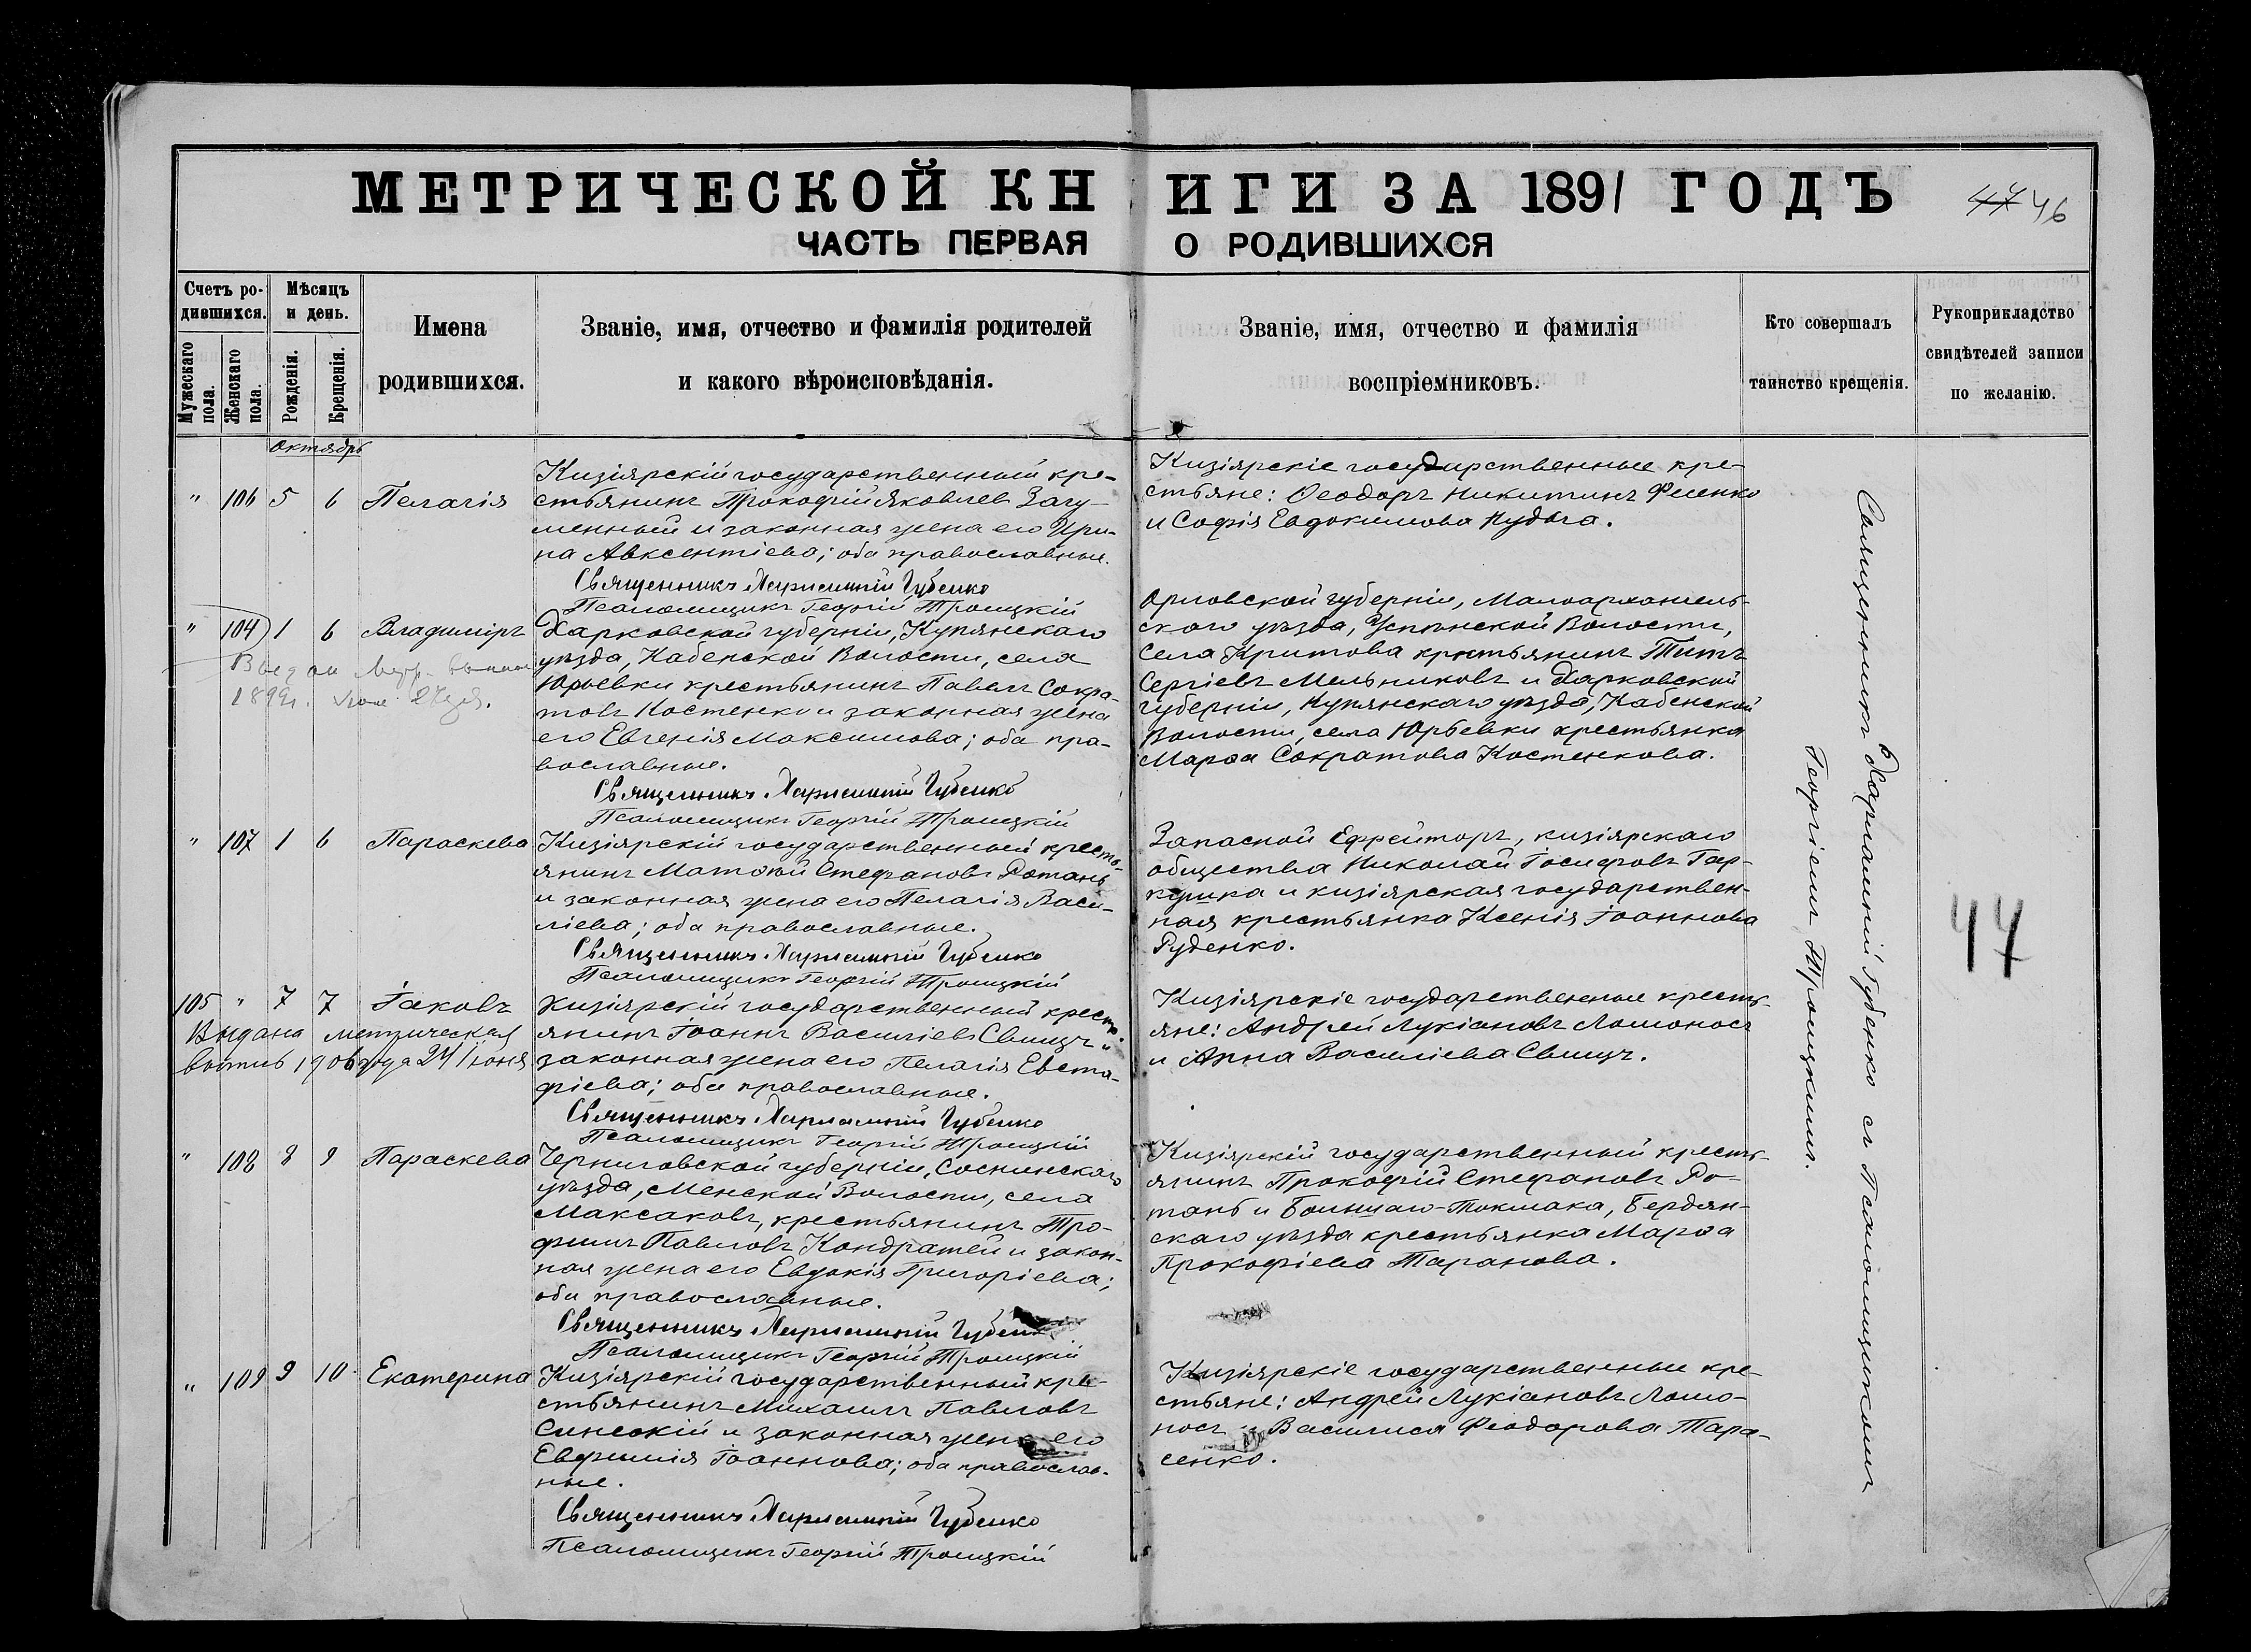 МЕТРИЧЕСКОЙ КНИГИ ЗА 1891 ГОДЪ
47 46
ЧАСТЬ ПЕРВАЯ О РОДИВШИХСЯ
Счетъ ро-
дившихся.
Мужескаго пола.
Женскаго пола.
Мѣсяцъ
и день.
Рожденія.
Крещенія.
Имена
родившихся.
Званіе, имя, отчество и фамилія родителей
и какого вѣроисповѣданія.
Званіе, имя, отчество и фамилія
воспріемниковъ.
Кто совершалъ
таинство крещенія.
Рукоприкладство
свидѣтелей записи
по желанію.
Октябрь
" 106 5 6 Пелагія
Кизіярскій государственный кре-
стьянинъ Прокофій Яковлев Загу-
менный и законная жена его Ири-
на Авксентіева; оба православные.
Священникъ Харлампій Губенко
Псаломщикъ Георгій Троицкій
Кизіярскіе государственные кре-
стьяне: Ѳеодоръ Никитинъ Фесенко
и Софія Евдокимова Кудьга.
" 104 1 6 Владиміръ
1899г.
Харковской губерніи, Купянскаго
уѣзда, Кабенской Волости, села
Юрьевки крестьянинъ Павелъ Сокра-
товъ Костенко и законная жена
его Евгенія Максимова; оба пра-
вославные.
Священникъ Харлампій Губенко
Псаломщикъ Георгій Троицкій
Орловской губерніи, Малоархангель-
скаго уѣзда, Успенской Волости,
села Критова крестьянинъ Титъ
Сергіевъ Мельниковъ и Харковской
губерніи, Купянскаго уѣзда, Кабенской
Волости, села Юрьевки крестьянка
Марѳа Сократова Костенкова.
" 107 1 6 Параскева
Кизіярскій государственный кресть-
янинъ Матѳій Стефановъ Ротань
и законная жена его Пелагія Васи-
ліева; оба православные.
Священникъ Харлампій Губенко
Псаломщикъ Георгій Троицкій
Запасной Ефрейторъ, кизіярскаго
общества Николай Іосифовъ Гар-
куша и кизіярская государствен-
ная крестьянка Ксенія Іоаннова
Руденко.
105 " 7 7 Іаковъ
Выдана метрическая
выпись 1906 года 24 Іюня
Кизіярскій государственный кресть-
янинъ Іоаннъ Василіевъ Свищъ и
законная жена его Пелагія Евста-
фіева; оба православные.
Священникъ Харлампій Губенко
Псаломщикъ Георгій Троицкій
Кизіярскіе государственные кресть-
яне: Андрей Лукіановъ Ломоносъ
и Анна Василіева Свищъ.
" 108 8 9 Параскева
Черниговской губерніи, Соснинскаго
уѣзда, Менской Волости, села
Максаковъ, крестьянинъ Тро-
фимъ Павловъ Кондратей и закон-
ная жена его Евдокія Григоріева;
оба православные.
Священникъ Харлампій Губенко
Псаломщикъ Георгій Троицкій
Кизіярскій государственный кресть-
янинъ Прокофій Стефановъ Ро-
тань и Большаго-Токмака, Бердян-
скаго уѣзда крестьянка Марѳа
Прокофіева Таранова.
" 109 9 10 Екатерина
Кизіярскій государственный кре-
стьянинъ Михаилъ Павловъ
Синеокій и законная жена его
Евфимія Іоаннова; оба православ-
ные.
Священникъ Харлампій Губенко
Псаломщикъ Георгій Троицкій
Кизіярскіе государственные кре-
стьяне: Андрей Лукіановъ Ломо-
носъ и Василиса Феодорова Тара-
сенко.
Священникъ Харлампій Губенко съ Псаломщикомъ
Георгіемъ Троицкимъ.
47